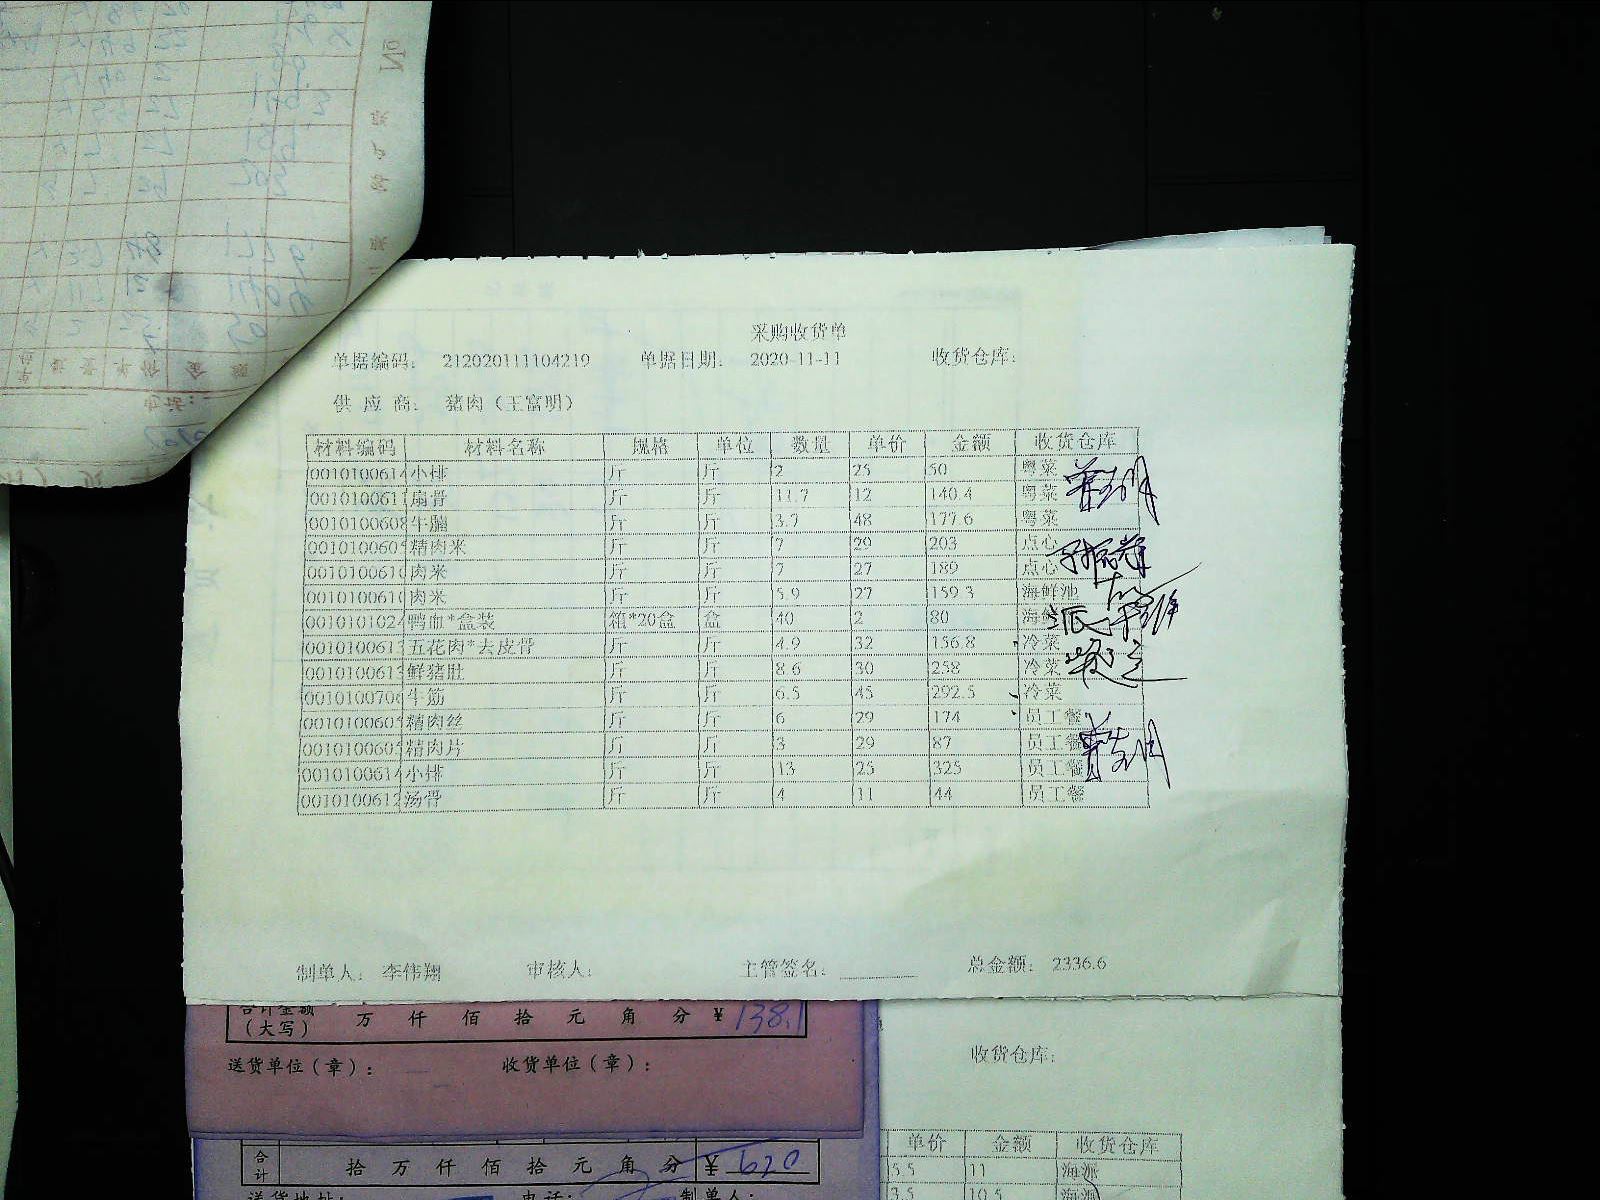 №
采购收货单
单据编码： 212020111104219 单据日期： 2020-11-11 收货仓库：
供应商： 猪肉（王富明）
材料编码 材料名称 规格 单位 数量 单价 金额 收货仓库
0010100614 小排 斤 斤 2 25 50 粤菜
001010061 扇骨 斤 斤 11.7 12 140.4 粤菜
0010100608 牛腩 斤 斤 3.7 48 177.6 粤菜
001010060 精肉米 斤 斤 7 29 203 点心
001010061 肉米 斤 斤 7 27 189 点心
001010061 肉米 斤 斤 5.9 27 159.3 海鲜池
001010102 鸭血*盒装 箱*20盒 盒 40 2 80 海鲜
001010061 五花肉*去皮骨 斤 斤 4.9 32 156.8 冷菜
001010061 鲜猪肚 斤 斤 8.6 30 258 冷菜
001010070 牛筋 斤 斤 6.5 45 292.5 冷菜
001010060 精肉丝 斤 斤 6 29 174 员工餐
001010060 精肉片 斤 斤 3 29 87 员工餐
0010100614 小排 斤 斤 13 25 325 员工餐
0010100612 汤骨 斤 斤 4 11 44 员工餐
制单人： 李伟翔 审核人： 主管签名： 总金额： 2336.6
合计金额（大写） 万 仟 佰 拾 元 角 分 ¥138.1
送货单位（章）： 收货单位（章）：
收货仓库：
合计 拾 万 仟 佰 拾 元 角 分 ¥ 620
送货地址： 电话： 制单人：
单价 金额 收货仓库
5.5 11 海派
3.5 10.5 海派